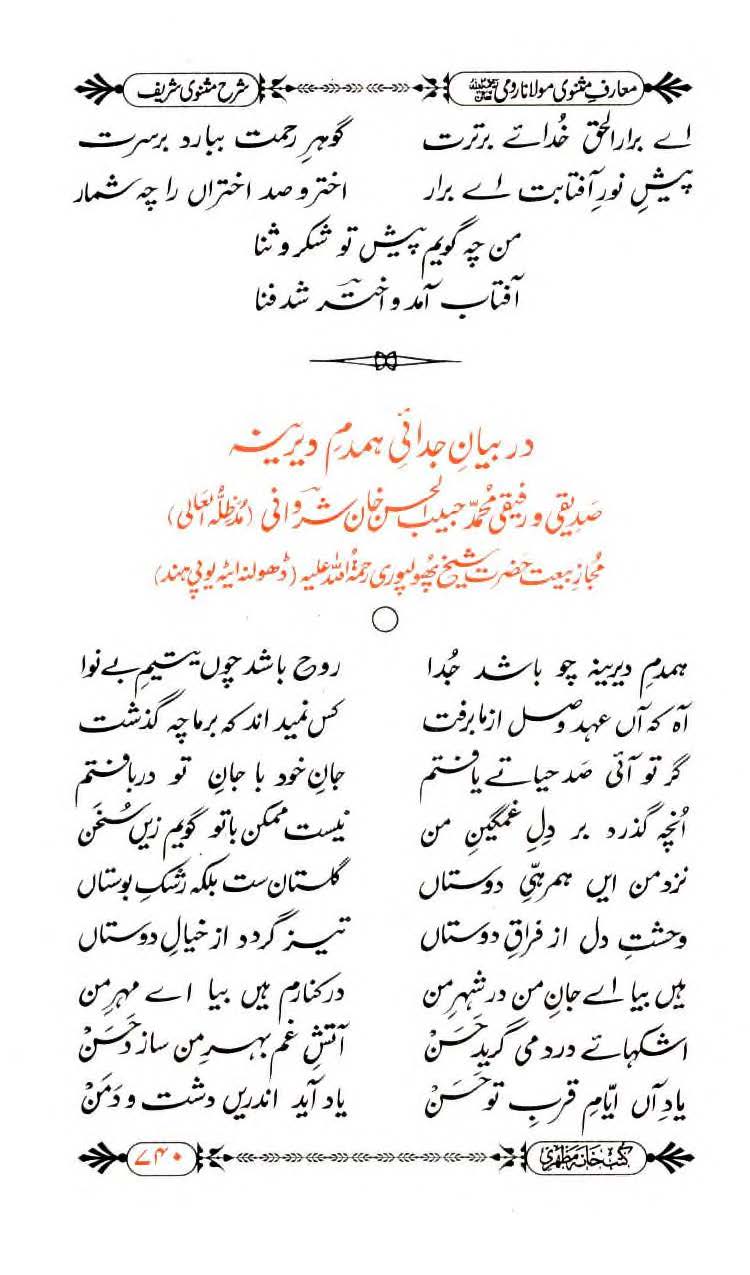 معارفِ مثنوی مولانا رومی شرح مثنوی شریف
اے برار الحق خُدائے برترت گوہرِ رحمت ببارد برسرت
پیشِ نورِ آفتابت اے برار اختر و صد اختراں را چہ شمار
من چہ گویم پیش تو شکر و ثنا
آفتاب آمد و اختر شد فنا
در بیانِ جدائیِ ہمدمِ دیرینہ
صَدِیقی و رفیقی مُحمّد حبیب الحسن خان شروانی (مُدَّظِلُّہُ العَالی)
مُجازِ بیعت حضرت شیخ پُھولپوری رحمۃُ اللہ علیہ (ڈھولنہ ایٹہ یوپی ہند)
ہمدمِ دیرینہ چو باشد جُدا روح باشد چوں یتیمِ بے نوا
آہ کہ آں عہدِ وصل از ما برفت کس نمیداند کہ برما چہ گذشت
گر تو آئی صَد حیاتے یافتم جانِ خود با جانِ تو دربافتم
اُنچہ گذرد بر دِلِ غمگینِ من نیست ممکن باتو گویم زیں سُخَن
نزد من ایں ہمرہیِ دوستاں گلستان ست بلکہ رشکِ بوستاں
وحشتِ دل از فراقِ دوستاں تیز گردد از خیالِ دوستاں
ہیں بیا اے جانِ من در شہرِ من در کنارم ہیں بیا اے مہرِ من
اشکہائے درد می گرید حَسَنْ آتشِ غم بہرِ من سازد حَسَنْ
یادِ آں ایّامِ قربِ تو حَسَنْ یاد آید اندریں دشت و دَمَنْ
کتب خانہ مظہری ۷۴۰